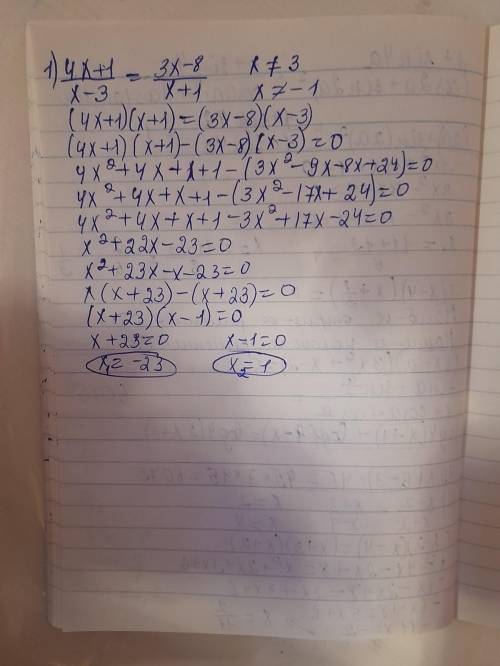 1) (4x+1)/(x-3) = (3x-8)/(x+1) x ≠ 3 x ≠ -1
(4x+1)(x+1)=(3x-8)(x-3)
(4x+1)(x+1)-(3x-8)(x-3)=0
4x²+4x+x+1-(3x²-9x-8x+24)=0
4x²+4x+x+1-(3x²-17x+24)=0
4x²+4x+x+1-3x²+17x-24=0
x²+22x-23=0
x²+23x-x-23=0
x(x+23)-(x+23)=0
(x+23)(x-1)=0
x+23=0 x-1=0
x₁=-23 x₂=1